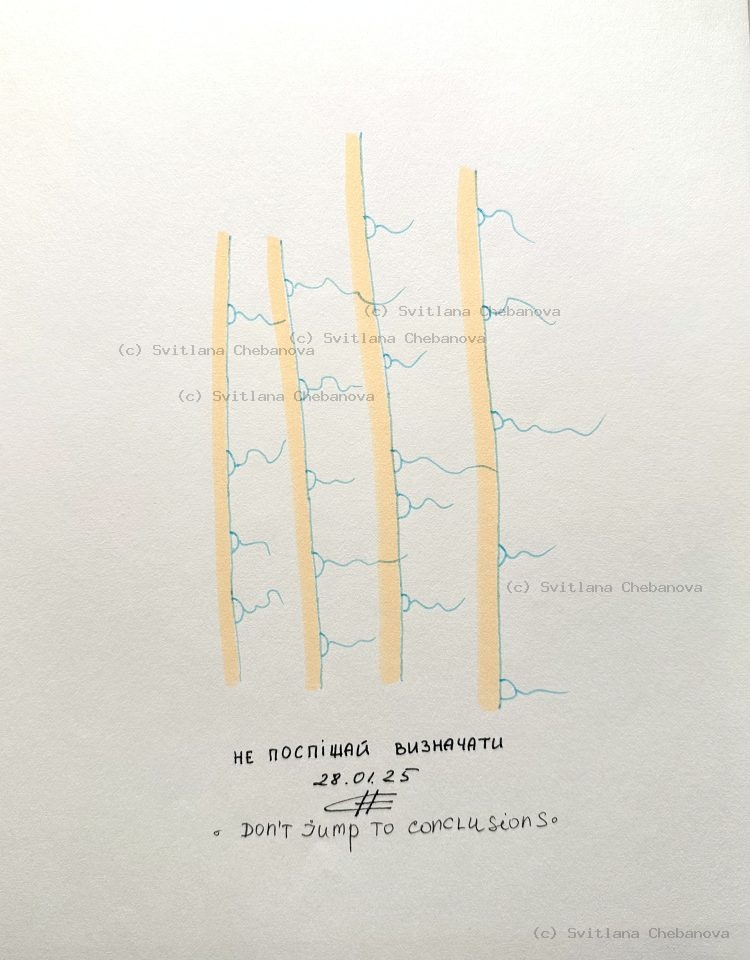 (c) Svitlana Chebanova
(c) Svitlana Chebanova
(c) Svitlana Chebanova
(c) Svitlana Chebanova
(c) Svitlana Chebanova
НЕ ПОСПІШАЙ ВИЗНАЧАТИ
28.01.25
DON'T jump TO conclusions
(c) Svitlana Chebanova